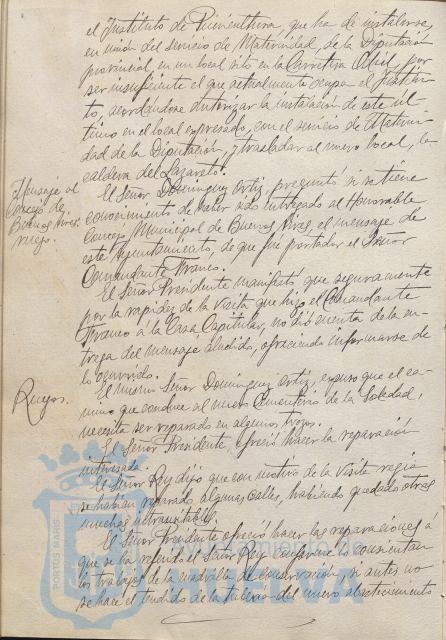 el Instituto de Puericultura que ha de instalarse,
en unión del servicio de Maternidad, de la Diputación
provincial, en un local sito en la Carretera Odiel, por
ser insuficiente el que actualmente ocupa el Institu-
to, acordándose autorizar la instalación de este úl-
timo en el local expresado, con el servicio de Materni-
dad de la Diputación, y trasladar al nuevo local, la
caldera del Lazareto.
Mensaje al
Concejo de
Buenos Aires.
ruego.
El Señor Domínguez Ortiz, preguntó si se tiene
conocimiento de haber sido entregado al Honorable
Concejo Municipal de Buenos Aires, el mensaje de
este Ayuntamiento, de que fué portador el Señor
Comandante Franco.
El Señor Presidente manifestó, que seguramente
por la rapidez de la visita que hizo el Comandante
Franco a la Casa Capitular, no dió cuenta de la en-
trega del mensaje aludido, ofreciendo informarse de
lo ocurrido.
Ruegos.
El mismo Señor Domínguez Ortiz, expuso que el ca-
mino que conduce al nuevo Cementerio de la Soledad,
necesita ser reparado en algunos trozos.
El Señor Presidente ofreció hacer la reparación
interesada.
El Señor Rey dijo que con motivo de la visita regia
se habían reparado algunas calles, habiendo quedado otras
muchas intransitables.
El Señor Presidente ofreció hacer las reparaciones á
que se ha referido el Señor Rey conforme lo consientan
los trabajos de la cuadrilla de conservación si antes no
se hace el tendido de la tubería del nuevo abastecimiento
PORTUS MARIS
Ayuntamiento de
HUELVA